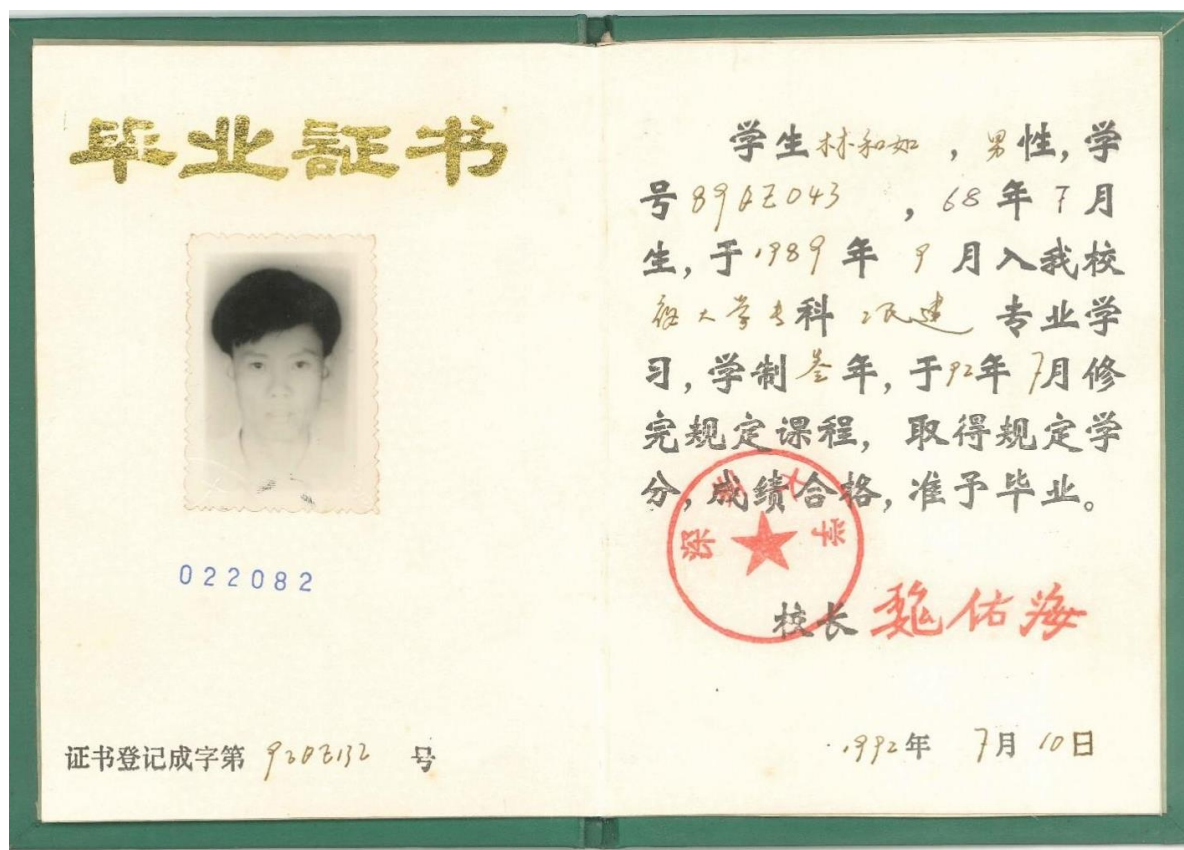 毕业証书
022082
证书登记成字第 920Z132 号
学生林和如，男性，学
号89 Z043，68年7月
生，于1989年9月入我校
夜大学专科 民建 专业学
习，学制叁年，于92年7月修
完规定课程，取得规定学
分，成绩合格，准予毕业。
深圳大学
校长 魏佑海
1992年 7月 10日